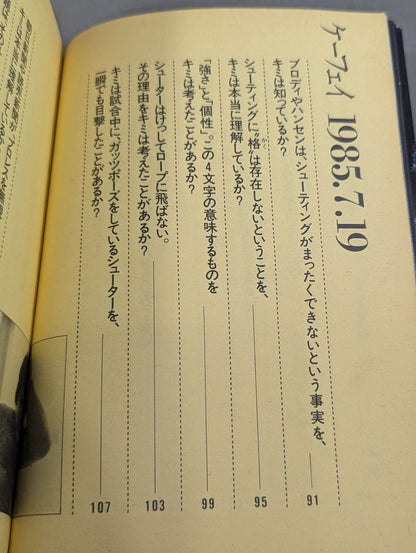 ケーフェイ 1985.7.19
ブロディやハンセンは、シューティングがまったくできないという事実を、
キミは知っているか? 91
シューティングに“格”は存在しないということを、
キミは本当に理解しているか? 95
「強さ」と「個性」。この4文字の意味するものを
キミは考えたことがあるか? 99
シューターはけっしてロープに飛ばない。
その理由をキミは考えたことがあるか? 103
キミは試合中に、ガッツポーズをしているシューターを、
一瞬でも目撃したことがあるか? 107